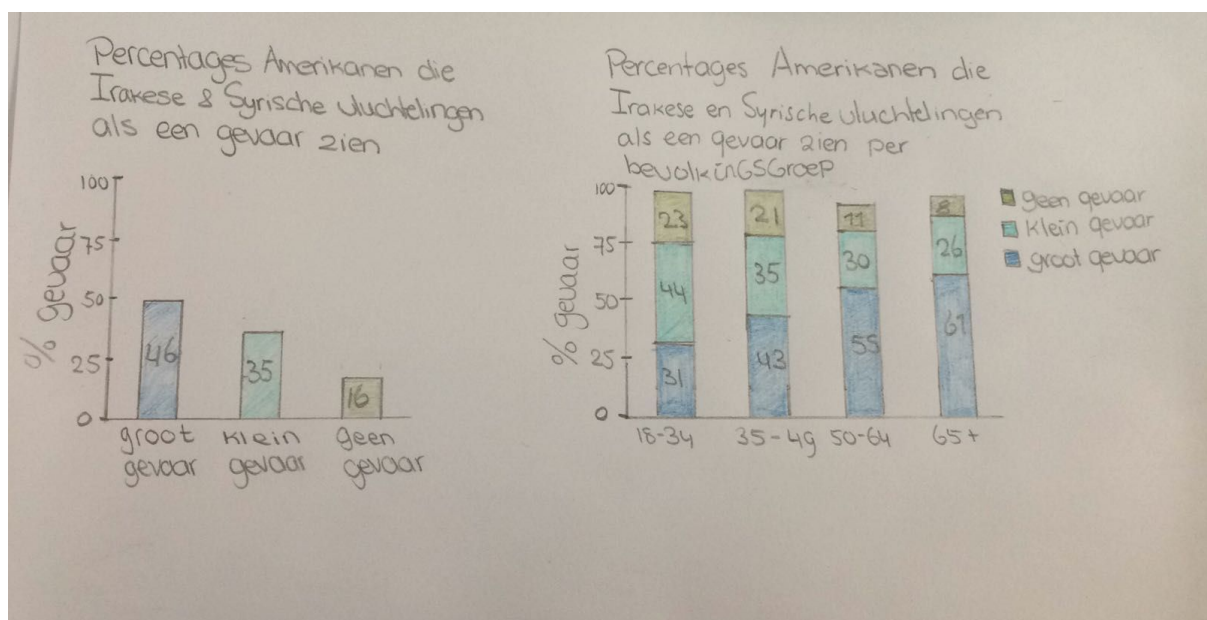 Percentages Amerikanen die
Irakese & Syrische vluchtelingen
als een gevaar zien
100
75
50
25
0
% gevaar
46
35
16
groot gevaar
klein gevaar
geen gevaar
Percentages Amerikanen die
Irakese en Syrische vluchtelingen
als een gevaar zien per
bevolkinGSGroep
100
75
50
25
0
% gevaar
23
44
31
21
35
43
11
30
55
8
26
61
18-34
35-49
50-64
65+
geen gevaar
klein gevaar
groot gevaar